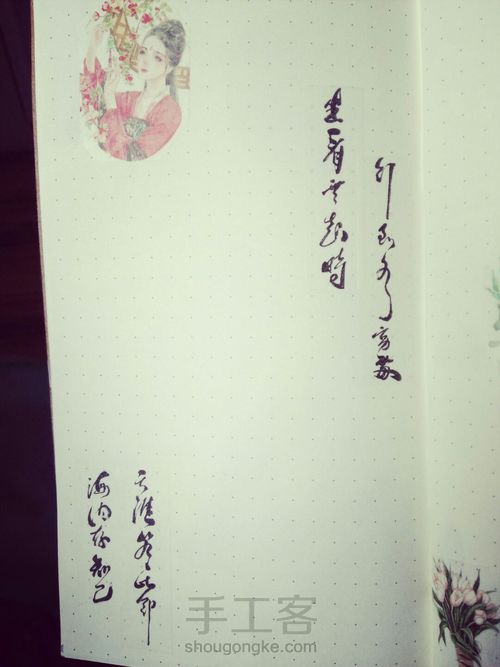 行到水穷處
坐看云起時
天涯若比邻
海内存知己
手工客
shougongke.com